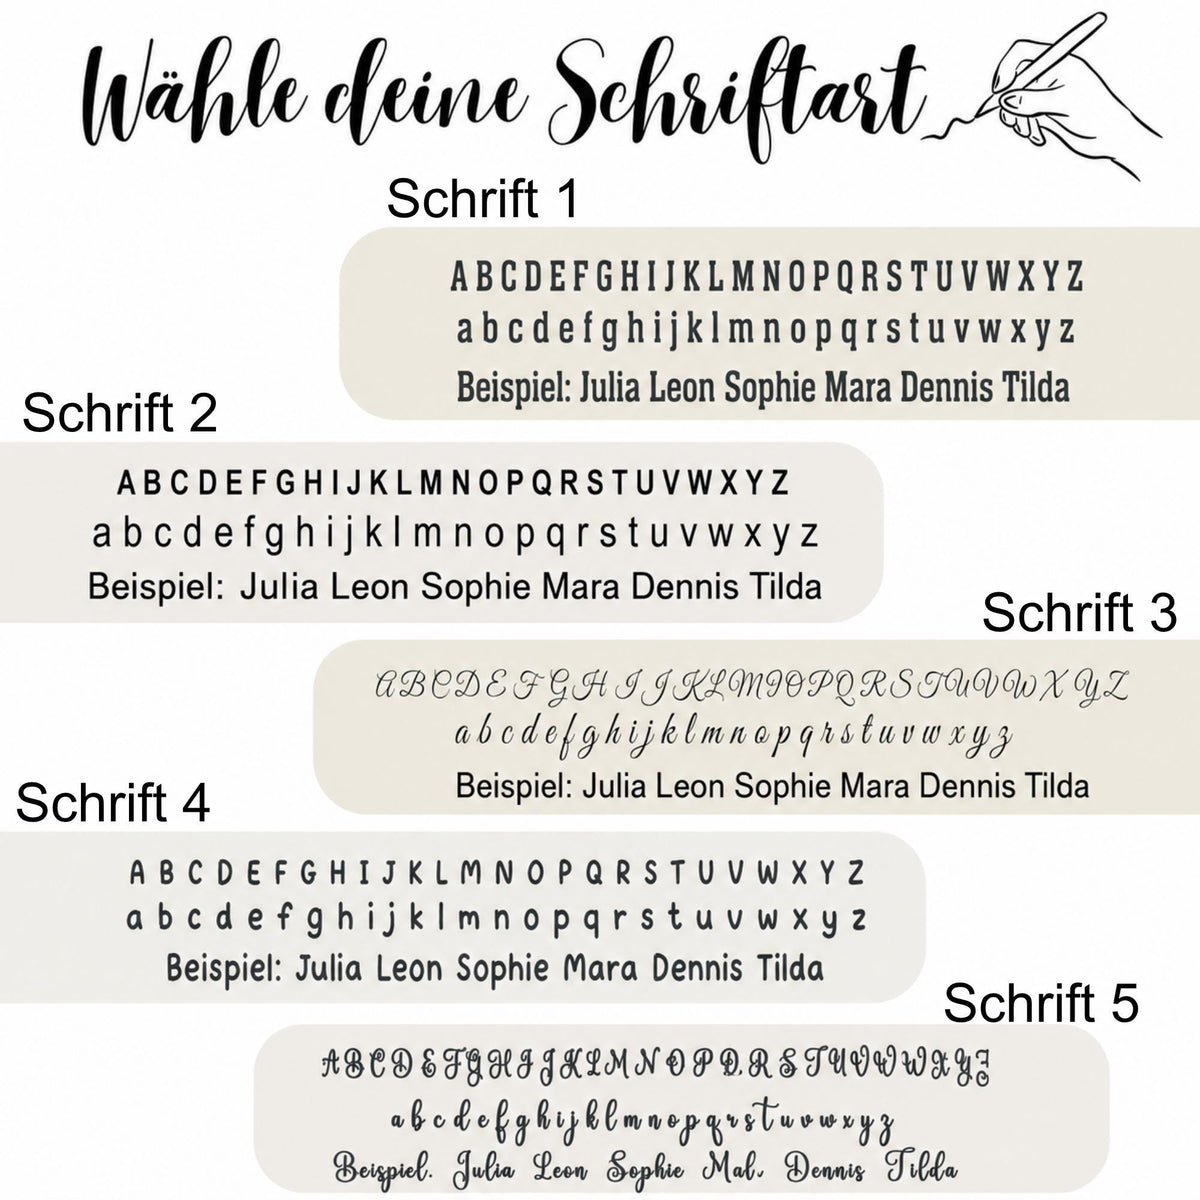 Wähle deine Schriftart
Schrift 1
A B C D E F G H I J K L M N O P Q R S T U V W X Y Z
a b c d e f g h i j k l m n o p q r s t u v w x y z
Beispiel: Julia Leon Sophie Mara Dennis Tilda
Schrift 2
A B C D E F G H I J K L M N O P Q R S T U V W X Y Z
a b c d e f g h i j k l m n o p q r s t u v w x y z
Beispiel: Julia Leon Sophie Mara Dennis Tilda
Schrift 3
A B C D E F G H I J K L M N O P Q R S T U V W X Y Z
a b c d e f g h i j k l m n o p q r s t u v w x y z
Beispiel: Julia Leon Sophie Mara Dennis Tilda
Schrift 4
A B C D E F G H I J K L M N O P Q R S T U V W X Y Z
a b c d e f g h i j k l m n o p q r s t u v w x y z
Beispiel: Julia Leon Sophie Mara Dennis Tilda
Schrift 5
A B C D E F G H I J K L M N O P Q R S T U V W X Y Z
a b c d e f g h i j k l m n o p q r s t u v w x y z
Beispiel. Julia Leon Sophie Dennis Tilda